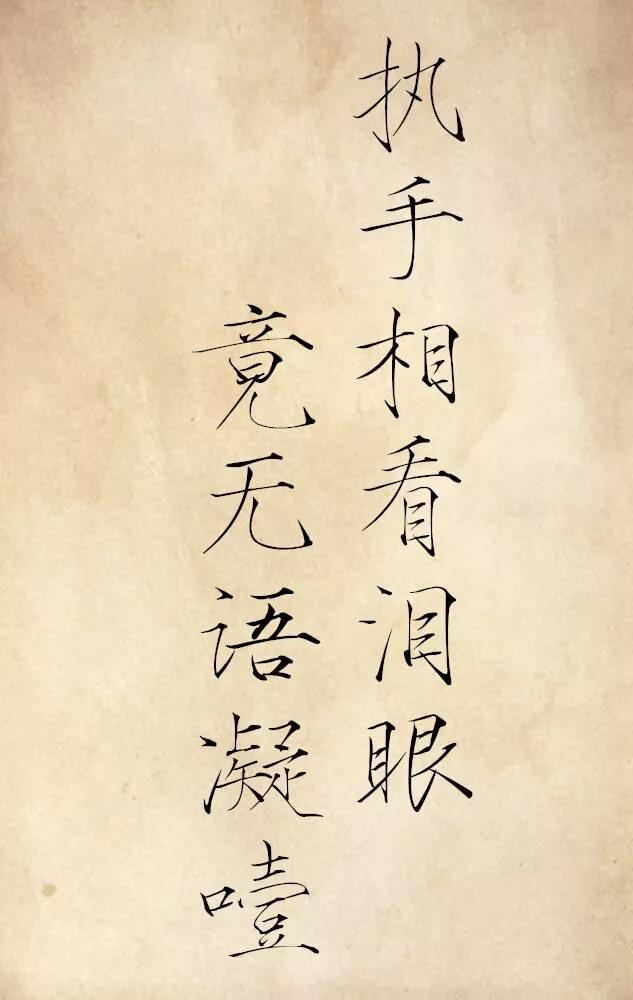 执手相看泪眼
竟无语凝噎